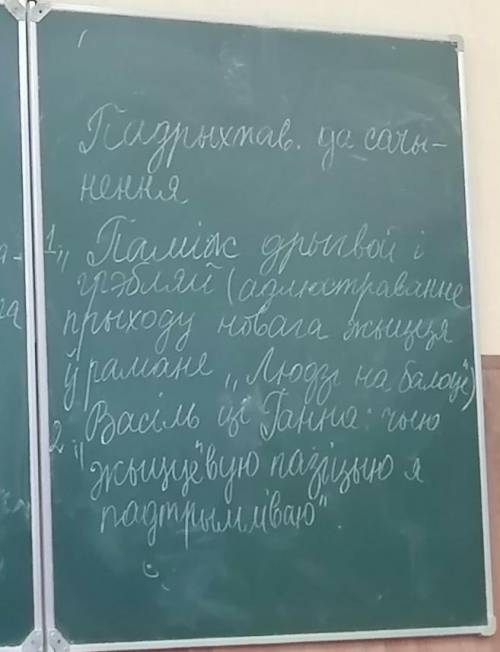 Падрыхтав. да сачы-
нення
1. „Паміж дрыгвой і
грэбляй (адлюстраванне
прыходу новага жыцця
ў рамане „Людзі на балоце")
2. „Васіль ці Ганна: чыю
жыццёвую пазіцыю я
падтрымліваю"